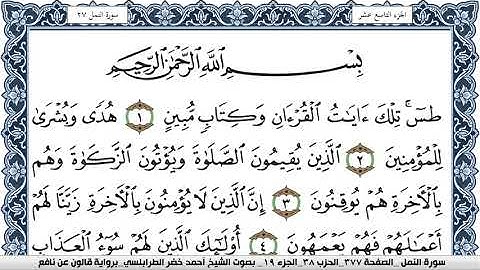 الجزء التاسع عشر
سورة النمل ٢٧
بِسْمِ اللَّهِ الرَّحْمَٰنِ الرَّحِيمِ
طسٓ تِلْكَ ءَايَٰتُ الْقُرْءَانِ وَكِتَابٖ مُّبِينٍ ١ هُدٗى وَبُشْرَىٰ
لِلْمُؤْمِنِينَ ٢ الَّذِينَ يُقِيمُونَ الصَّلَوٰةَ وَيُؤْتُونَ الزَّكَوٰةَ وَهُم
بِالْأَخِرَةِ هُمْ يُوقِنُونَ ٣ إِنَّ الَّذِينَ لَا يُؤْمِنُونَ بِالْأَخِرَةِ زَيَّنَّا لَهُمْ
أَعْمَٰلَهُمْ فَهُمْ يَعْمَهُونَ ٤ أُوْلَٰٓئِكَ الَّذِينَ لَهُمْ سُوٓءُ الْعَذَابِ
سورة النمل _ الصفحة ٣٧٧ _ الحزب ٣٨ _ الجزء ١٩ _ بصوت الشيخ أحمد خضر الطرابلسي _ برواية قالون عن نافع